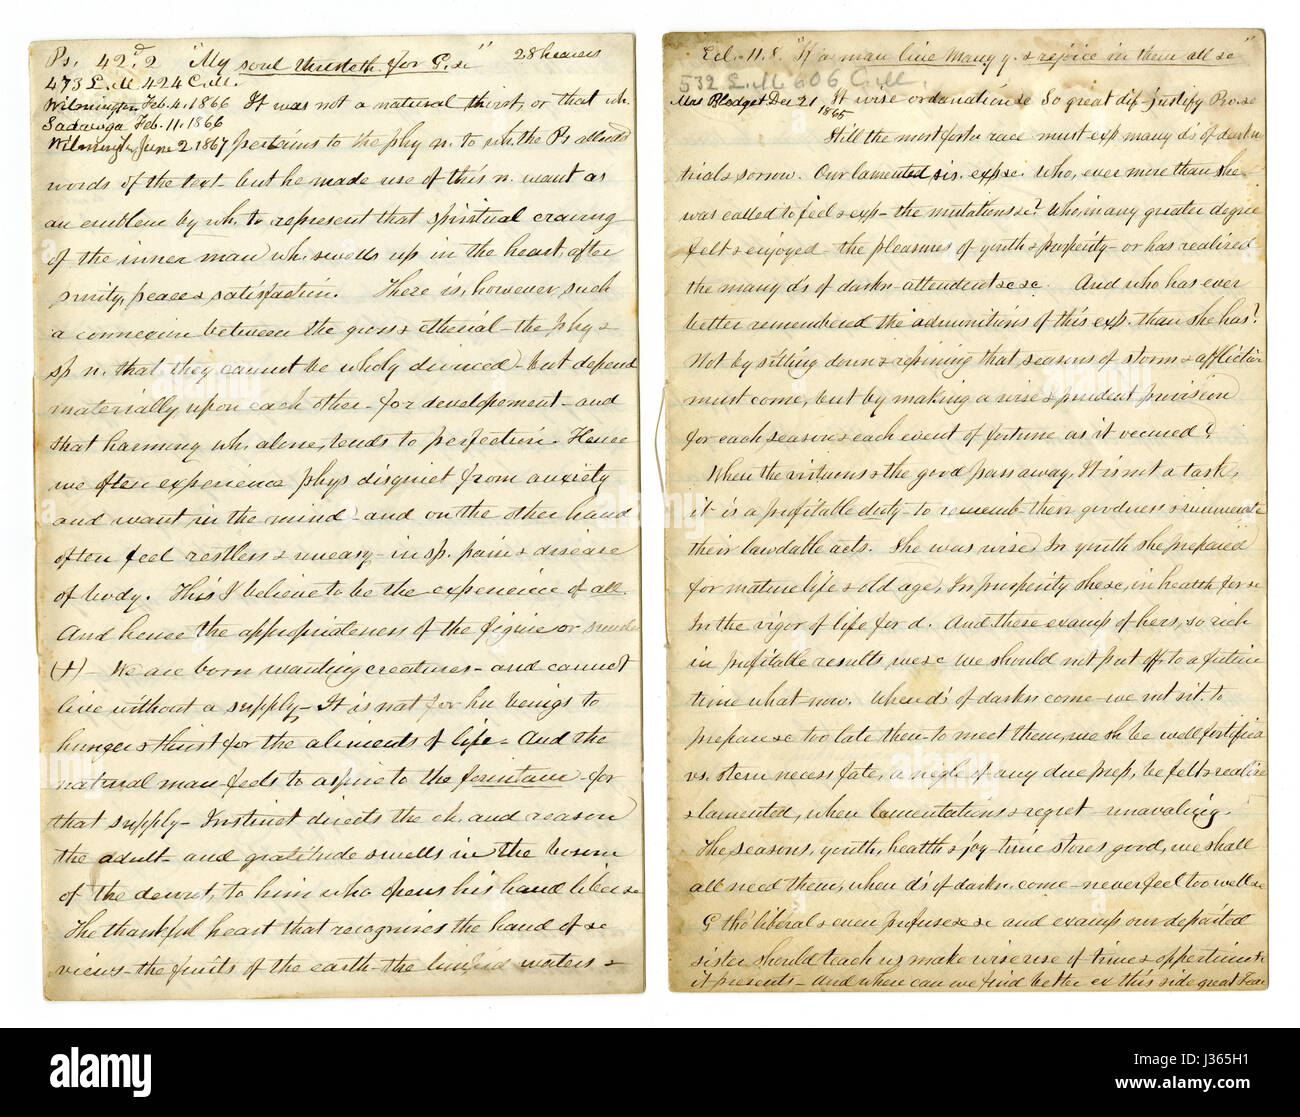 Ps. 42d. 2 "My soul thirsteth for G. &c" 28 heavens
473 L.M 424 C.M.
Wilmington Feb. 4. 1866 It was not a natural thirst, or that wh.
Feb. 11. 1866
Wilmingtn June 2. 1867 pertains to the phy n. to wh. the Ps alluded
words of the text - but he made use of this n. want as
an emblem by wh. to represent that spiritual craving
of the inner man wh. swells up in the heart, after
purity, peace & satisfaction. There is, however, such
a connexion between the gross & etherial - the phy &
sp n. that they cannot be wholy divorced - but depend
materially upon each other - for developement - and
that harmony wh. alone, tends to perfection. Hence
we often experience phys disquiet from anxiety
and want in the mind - and on the other hand
often feel restless & uneasy - in sp. pain & disease
of body. This I believe to be the experience of all.
And hence the appropriateness of the figure or
(+) - We are born wanting creatures - and cannot
live without a supply - It is nat for hu beings to
hunger & thirst for the aliments of life - And the
natural man feels to aspire to the fountain - for
that supply - Instinct directs the ch. and reason
the adult - and gratitude swells in the bosom
of the devout, to him who opens his hand liber &c
The thankful heart that recognises the hand of &c
views - the fruits of the earth - the limpid waters &
Ecl. 11. 8. "If a man live many y. & rejoice in them all &c"
532 L.M. 606 C.M.
Mrs Blodget Dec 21 1865 It wise ordanation &c So great dif - justify Prov. &c
Still the most fortu race must exp many ds of darkn
trials sorrow. Our lamented sis. exp &c. Who, ever more than she
was called to feel & exp - the mutations &c? Who, in any greater degree
felt & enjoyed the pleasures of youth & prosperity - or has realised
the many d's of darkn attendent &c &c. And who has ever
better remembered the admonitions of this exp. than she has?
Not by sitting down & repining that seasons of storm & affliction
must come, but by making a wise & prudent provision
for each season & each event of fortune as it occured?
When the virtuous & the good pass away, It is not a task,
it is a profitable duty - to rememb their goodness & enumerate
their lawdable acts. She was wise In youth she prepared
for mature life & old age, In prosperity she &c, in health for &c
In the vigor of life for d. And these examp of hers, so rich
in profitable results were we should not put off to a future
time what now. When d's of darkn come - we not sit to
prepare &c too late then - to meet them, we sh be well fortified
vs. stern necess fate, a negle of any due prep, be felt & realised
& lamented, when lamentations & regret unavaling.
The seasons, youth, health & joy - time stores good, we shall
all need them, when d's of darkn. come - never feel too well &c
G tho liberal & even profuse &c &c and examp our departed
sister should teach us make wise use of time & opportunity
it presents - and where can we find better ex this side great